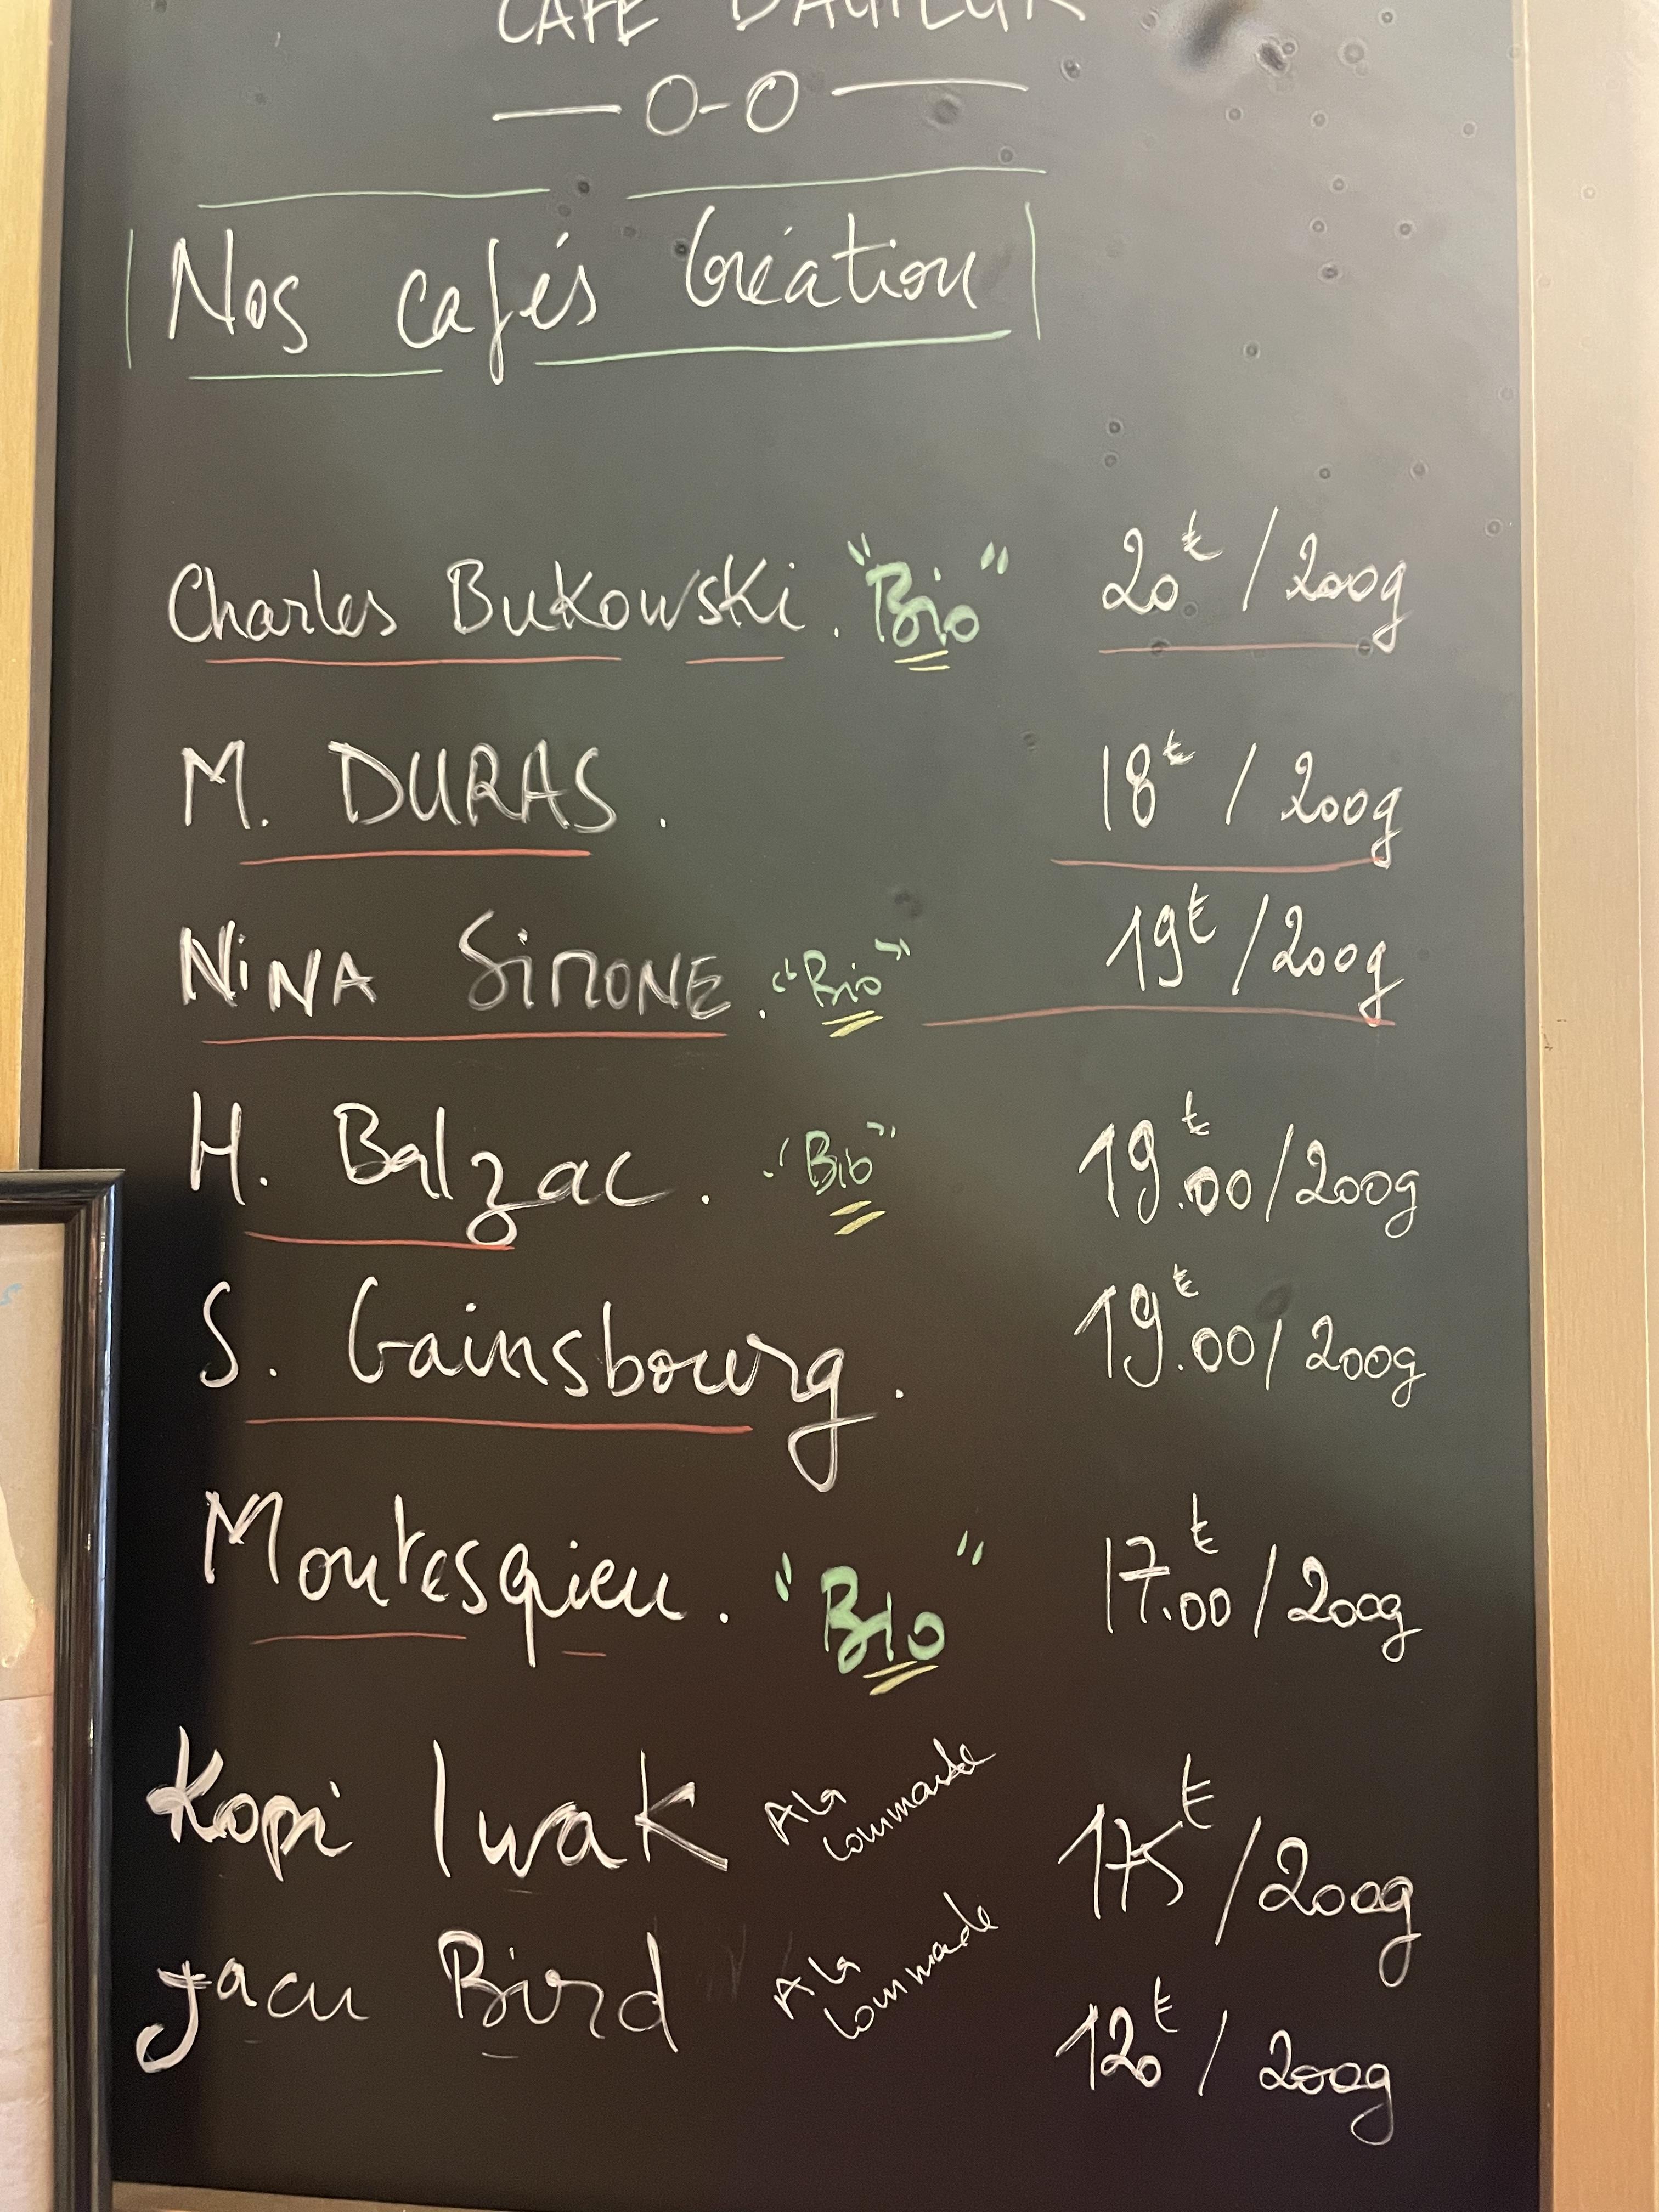 CAFÉ
—O-O—
Nos cafés Création
Charles Bukowski. "Bio" 20€ / 200g
M. DURAS. 18€ / 200g
NiNA SiMONE. "Bio" 19€ / 200g
H. Balzac. "Bio" 19.00€ / 200g
S. Gainsbourg. 19.00€ / 200g
Montesqieu. "BIO" 17.00€ / 200g
Kopi lwak A la commande 175€ / 200g
Jacu Bird A la commande 120€ / 200g